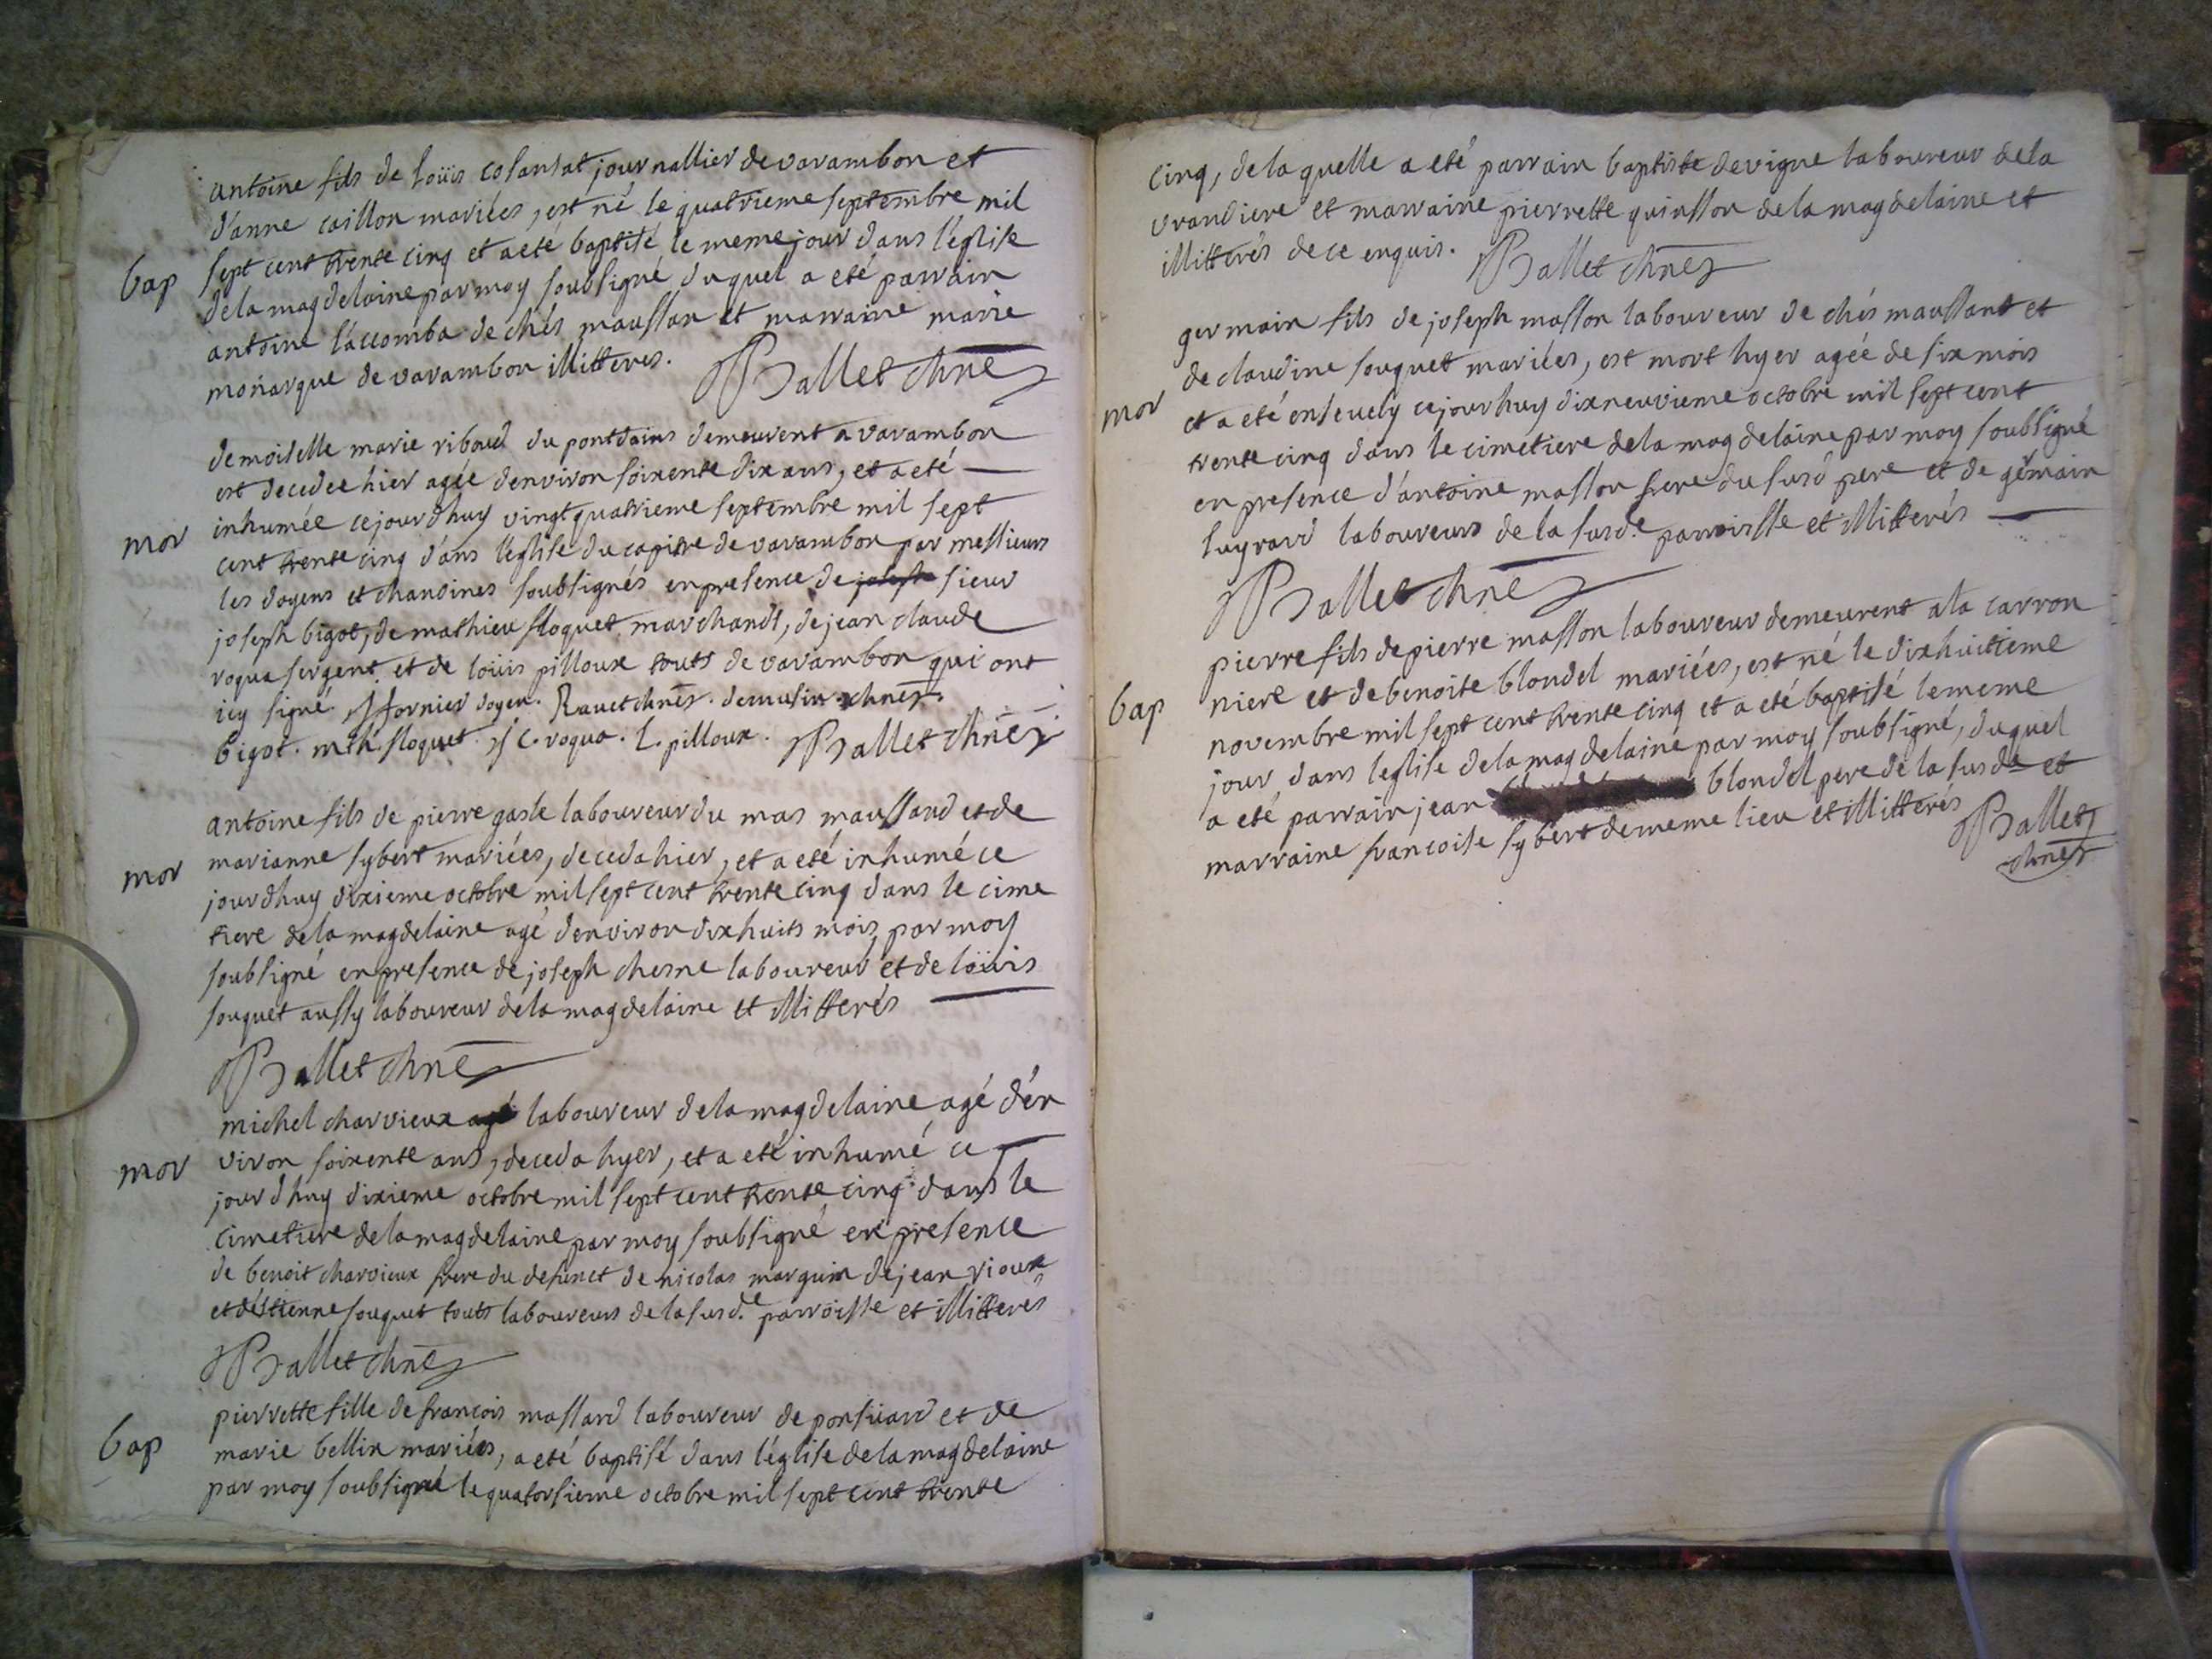 antoine fils de loüis colansat journallier de varambon et
d'anne caillon mariées, est né le quatrieme septembre mil
bap sept cent trente cinq et a eté baptisé le meme jour dans l'église
de la magdelaine par moy soubsigné duquel a eté parrain
antoine laccomba de chés maussan et marraine marie
monarque de varambon illitteres. Ballet chne
demoiselle marie riboud du pontdains demeurent a varambon
est decedee hier agée d'environ soixente dix ans, et a eté
mor inhumée cejourdhuy vingtquatrieme septembre mil sept
cent trente cinq dans l'église du capitre de varambon par messieurs
les doyens et chanoines soubsignés en presence de joseph sieur
joseph bigot, de mathieu floquet marchandt, de jean claude
roqua sergent et de loüis pilloux touts de varambon qui ont
icy signé. J fornier doyen. Ravet chne. chne.
bigot. mth. floquet. J C. roqua. L. pilloux. Ballet chne
antoine fils de pierre gasle laboureur du mas maussard et de
mor marianne sybert mariées, deceda hier, et a eté inhumé ce
jourdhuy dixieme octobre mil sept cent trente cinq dans le cime
tiere de la magdelaine agé d'environ dixhuits mois par moy
soubsigné en presence de joseph chesne laboureur et de loüis
souquet aussy laboureur de la magdelaine et illitterés
Ballet chne
michel charvieux agé laboureur de la magdelaine agé d'en
mor viron soixente ans, deceda hyer, et a eté inhumé ce
jourdhuy dixieme octobre mil sept cent trente cinq dans le
cimetiere de la magdelaine par moy soubsigné en presence
de benoit charvieux frere du defunct de nicolas marguin de jean vioux
et d'éstienne souquet touts laboureurs de la susd.e parroisse et illitterés
Ballet chne
pierrette fille de francois massard laboureur de ponsuard et de
bap marie bellin mariées, a eté baptisé dans l'église de la magdelaine
par moy soubsigné le quatorsieme octobre mil sept cent trente
cinq, de laquelle a eté parrain baptiste devigne laboureur de la
vrandiere et marraine pierrette quinsson de la magdelaine et
illitterés de ce enquis. Ballet chne
germain fils de joseph masson laboureur de chés maussant et
de claudine souquet mariées, est mort hyer agée de six mois
mor et a eté ensevely cejourhuy dixneuvieme octobre mil sept cent
trente cinq dans le cimetiere de la magdelaine par moy soubsigné
en presence d'antoine masson frere du susd pere et de germain
sugrard laboureurs de la susd.e parroisse et illitterés
Ballet chne
pierre fils de pierre masson laboureur demeurent a la carron
niere et de benoite blondel mariées, est né le dixhuitieme
bap novembre mil sept cent trente cinq et a eté baptisé le meme
jour dans leglise de la magdelaine par moy soubsigné, duquel
a eté parrain jean blondel pere de la susde et
marraine francoise sybert de meme lieu et illitterés Ballet
chne